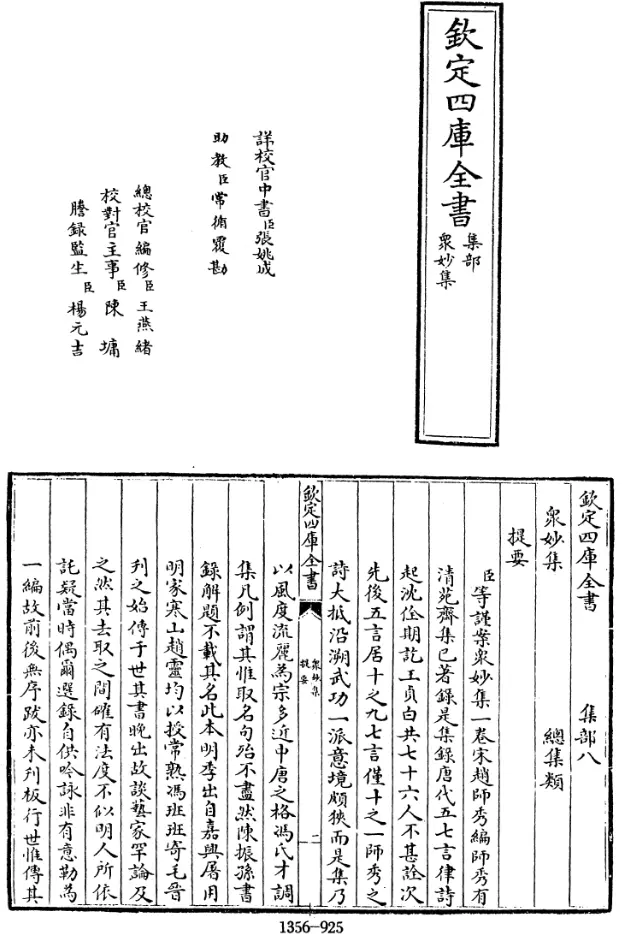 欽定四庫全書
集部
衆妙集
詳校官中書臣張姚成
助教臣常循覆勘
總校官編修臣王燕緒
校對官主事臣陳墉
謄錄監生臣楊元吉
欽定四庫全書
集部八
衆妙集
總集類
提要
臣等謹案衆妙集一卷宋趙師秀編師秀有
清苑齋集已著錄是集錄唐代五七言律詩
起沈佺期訖王貞白共七十六人不甚詮次
先後五言居十之九七言僅十之一師秀之
詩大抵沿溯武功一派意境頗狹而是集乃
欽定四庫全書
衆妙集
提要
二
以風度流麗為宗多近中唐之格馮氏才調
集凡例謂其惟取名句殆不盡然陳振孫書
錄解題不載其名此本明季出自嘉興屠用
明家寒山趙靈均以授常熟馮班班寄毛晉
刋之始傳于世其書晚出故談藝家罕論及
之然其去取之間確有法度不似明人所依
託疑當時偶爾選錄自供吟詠非有意勒為
一編故前後無序跋亦未列板行世惟傳其
1356-925